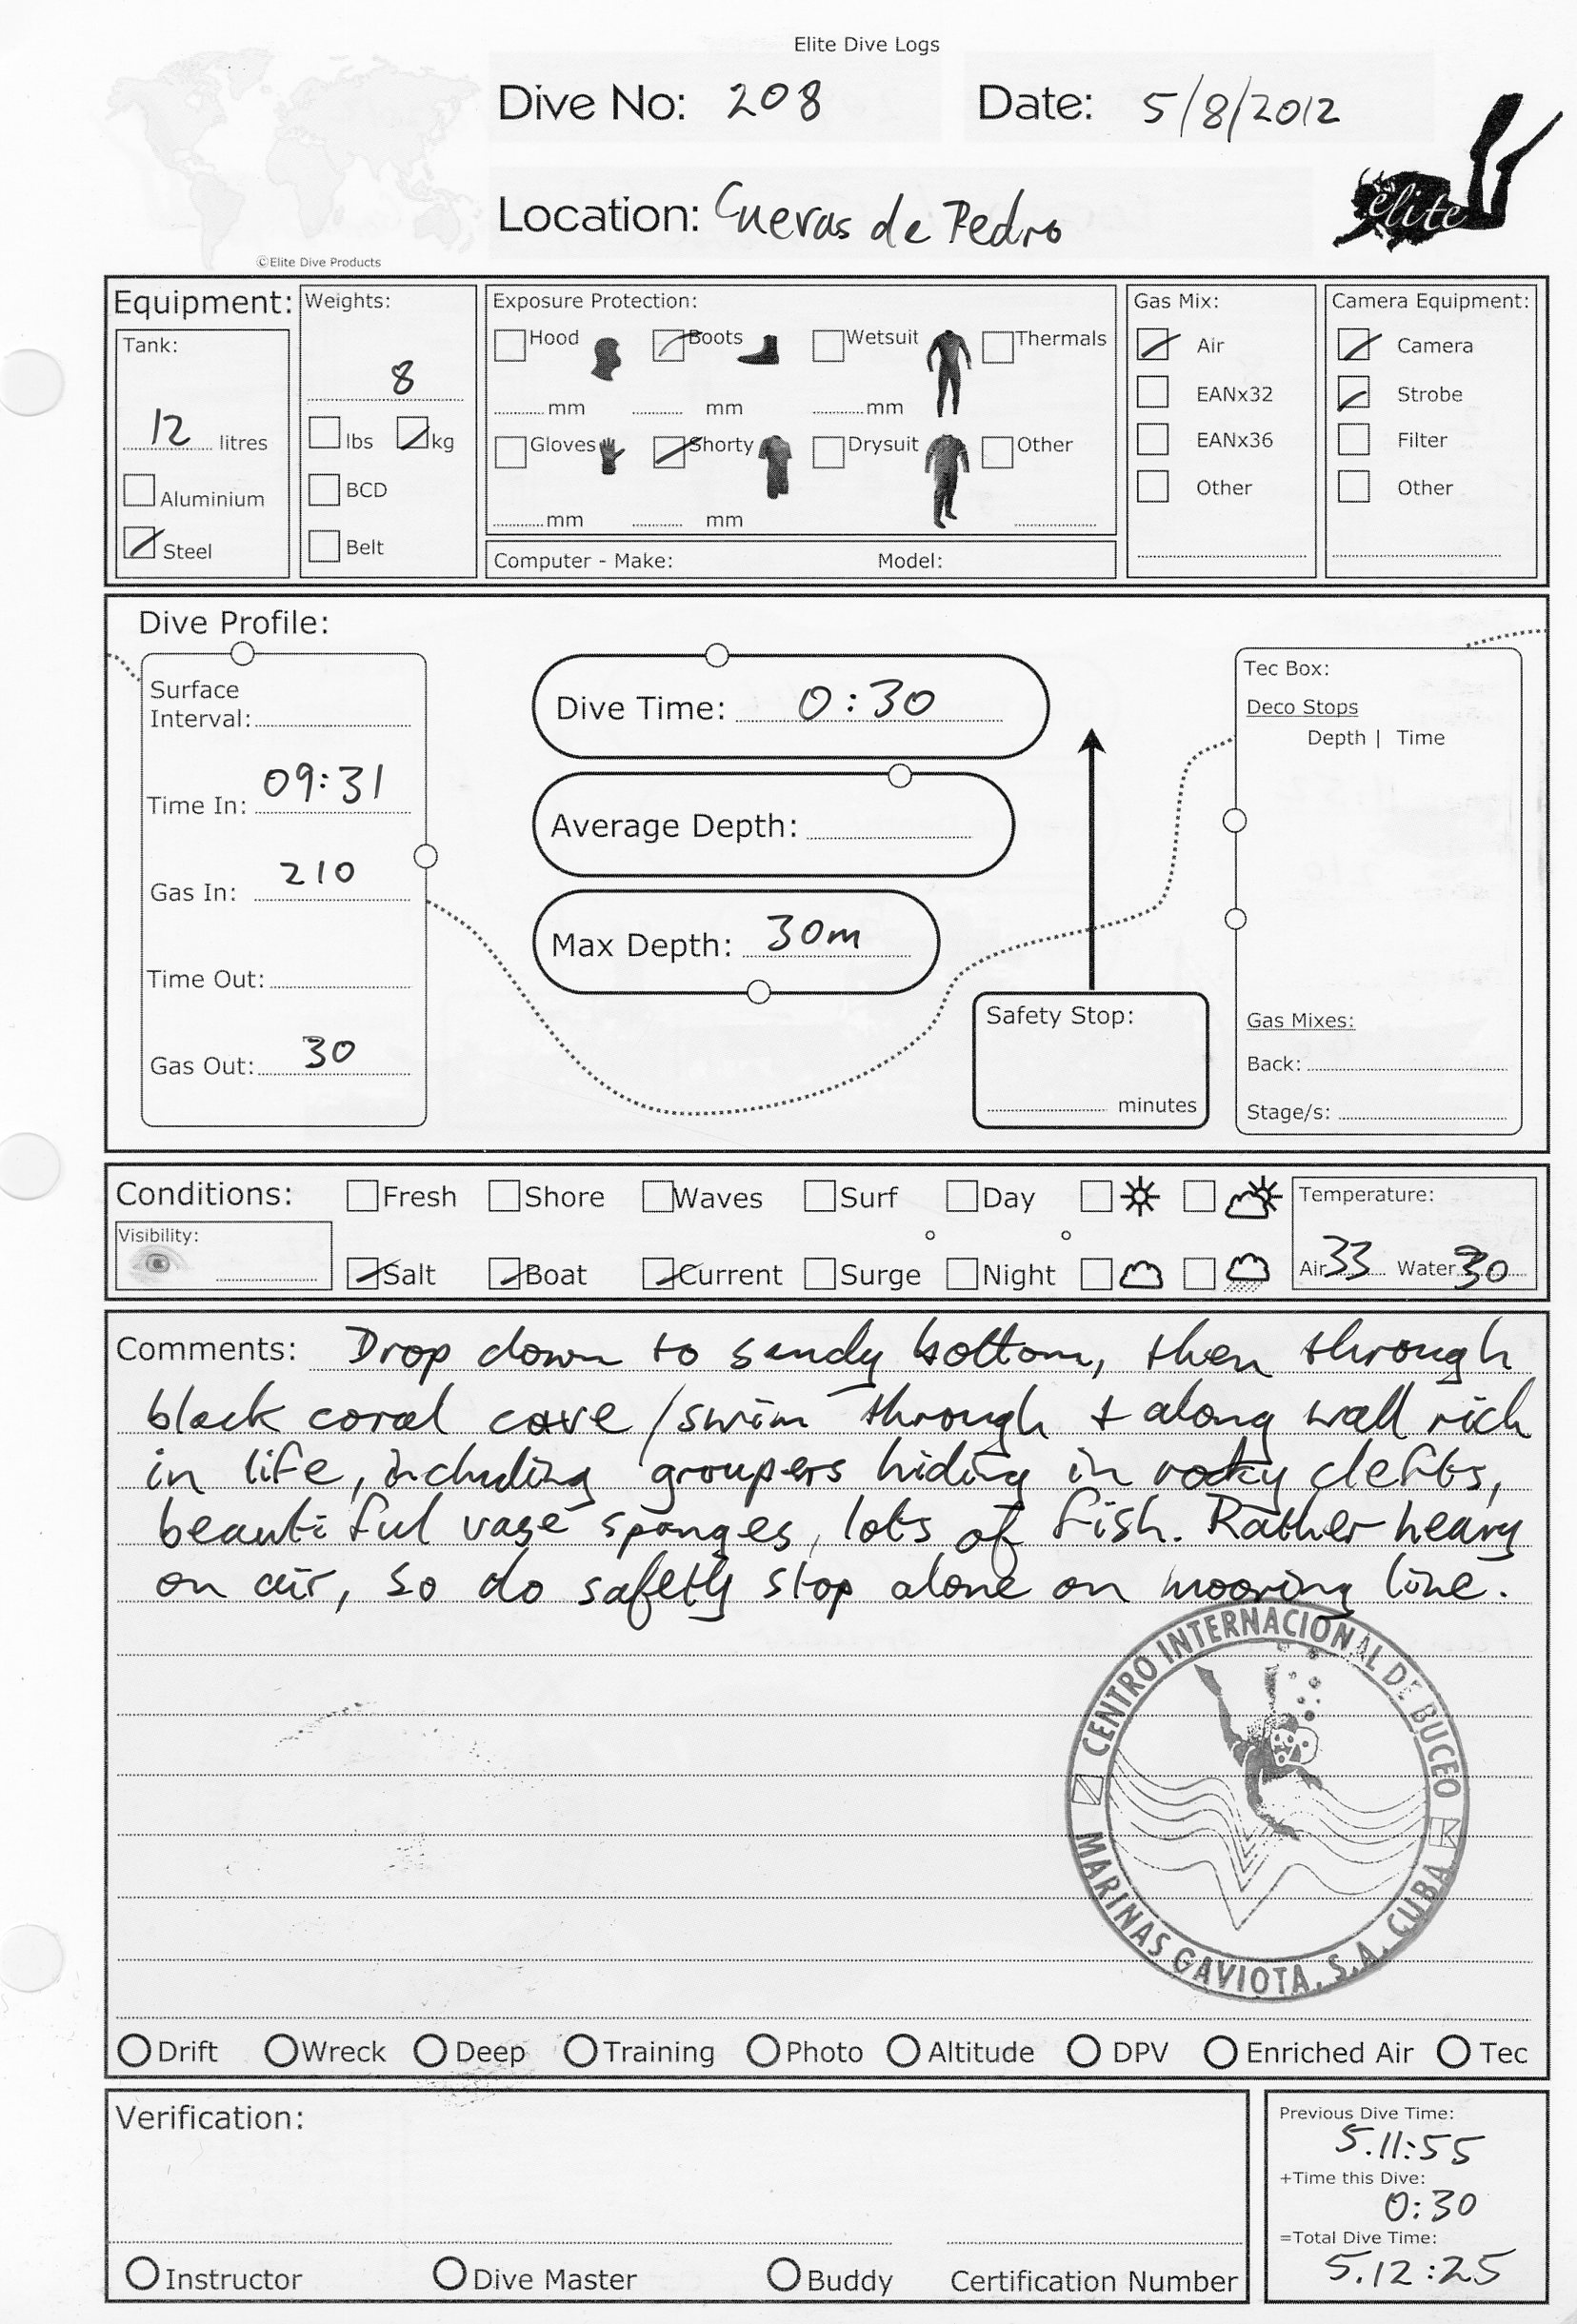 Elite Dive Logs
Dive No: 208 Date: 5/8/2012
Location: Cuevas de Pedro
elite
©Elite Dive Products
Equipment:
Tank:
12 litres
Aluminium
Steel
Weights:
8
lbs kg
BCD
Belt
Exposure Protection:
Hood Boots Wetsuit Thermals
mm mm mm
Gloves Shorty Drysuit Other
mm mm
Computer - Make: Model:
Gas Mix:
Air
EANx32
EANx36
Other
Camera Equipment:
Camera
Strobe
Filter
Other
Dive Profile:
Surface
Interval:
Time In: 09:31
Gas In: 210
Time Out:
Gas Out: 30
Dive Time: 0:30
Average Depth:
Max Depth: 30m
Safety Stop:
minutes
Tec Box:
Deco Stops
Depth | Time
Gas Mixes:
Back:
Stage/s:
Conditions: Fresh Shore Waves Surf Day
Visibility:
Salt Boat Current Surge Night
Temperature:
Air 33 Water 30
Comments: Drop down to sandy bottom, then through
black coral cave / swim through + along wall rich
in life, including groupers hiding in rocky clefts,
beautiful vase sponges, lots of fish. Rather heavy
on air, so do safety stop alone on mooring line.
CENTRO INTERNACIONAL DE BUCEO
MARINAS GAVIOTA, S.A. CUBA
Drift Wreck Deep Training Photo Altitude DPV Enriched Air Tec
Verification:
Instructor Dive Master Buddy Certification Number
Previous Dive Time:
5.11:55
+Time this Dive:
0:30
=Total Dive Time:
5.12:25